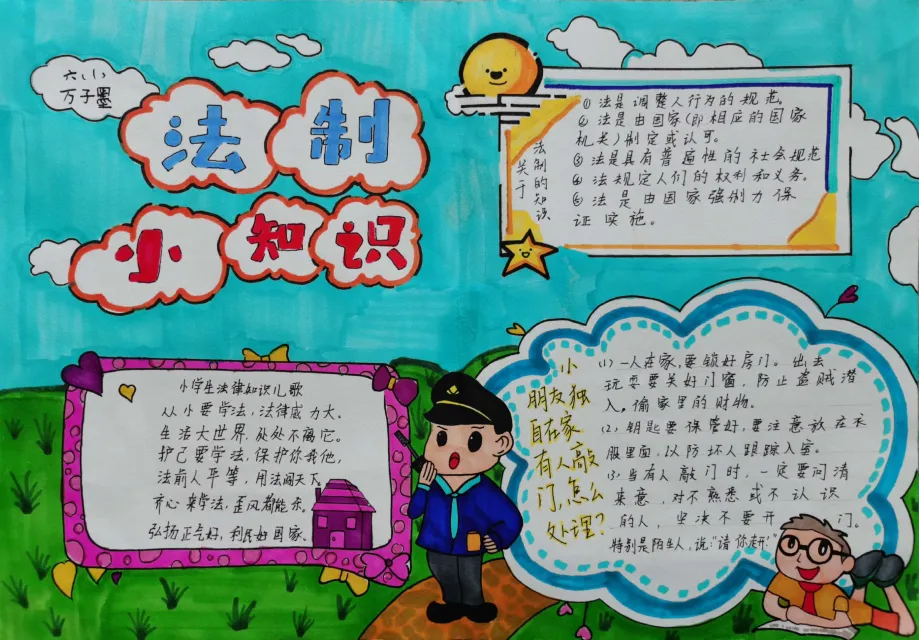 六(1)
万子墨
法制
小知识
关于
法制的知识
①法是调整人行为的规范
②法是由国家(即相应的国家
机关)制定或认可。
③法是具有普遍性的社会规范
④法规定人们的权利和义务。
⑤法是由国家强制力保
证实施。
小学生法律知识儿歌
从小要学法,法律威力大。
生活大世界,处处不离它。
护己要学法,保护你我他,
法前人平等,用法闯天下。
齐心来学法,歪风都能杀。
弘扬正气好,利民好国家。
小
朋友独
自在家
有人敲
门,怎么
处理?
(1)一人在家,要锁好房门。出去
玩耍要关好门窗,防止盗贼潜
入。偷家里的财物。
(2)钥匙要保管好,要注意放在衣
服里面,以防坏人跟踪入室。
(3)当有人敲门时,一定要问清
来意,对不熟悉或不认识
的人,坚决不要开门。
特别是陌生人,说:"请你走开!"